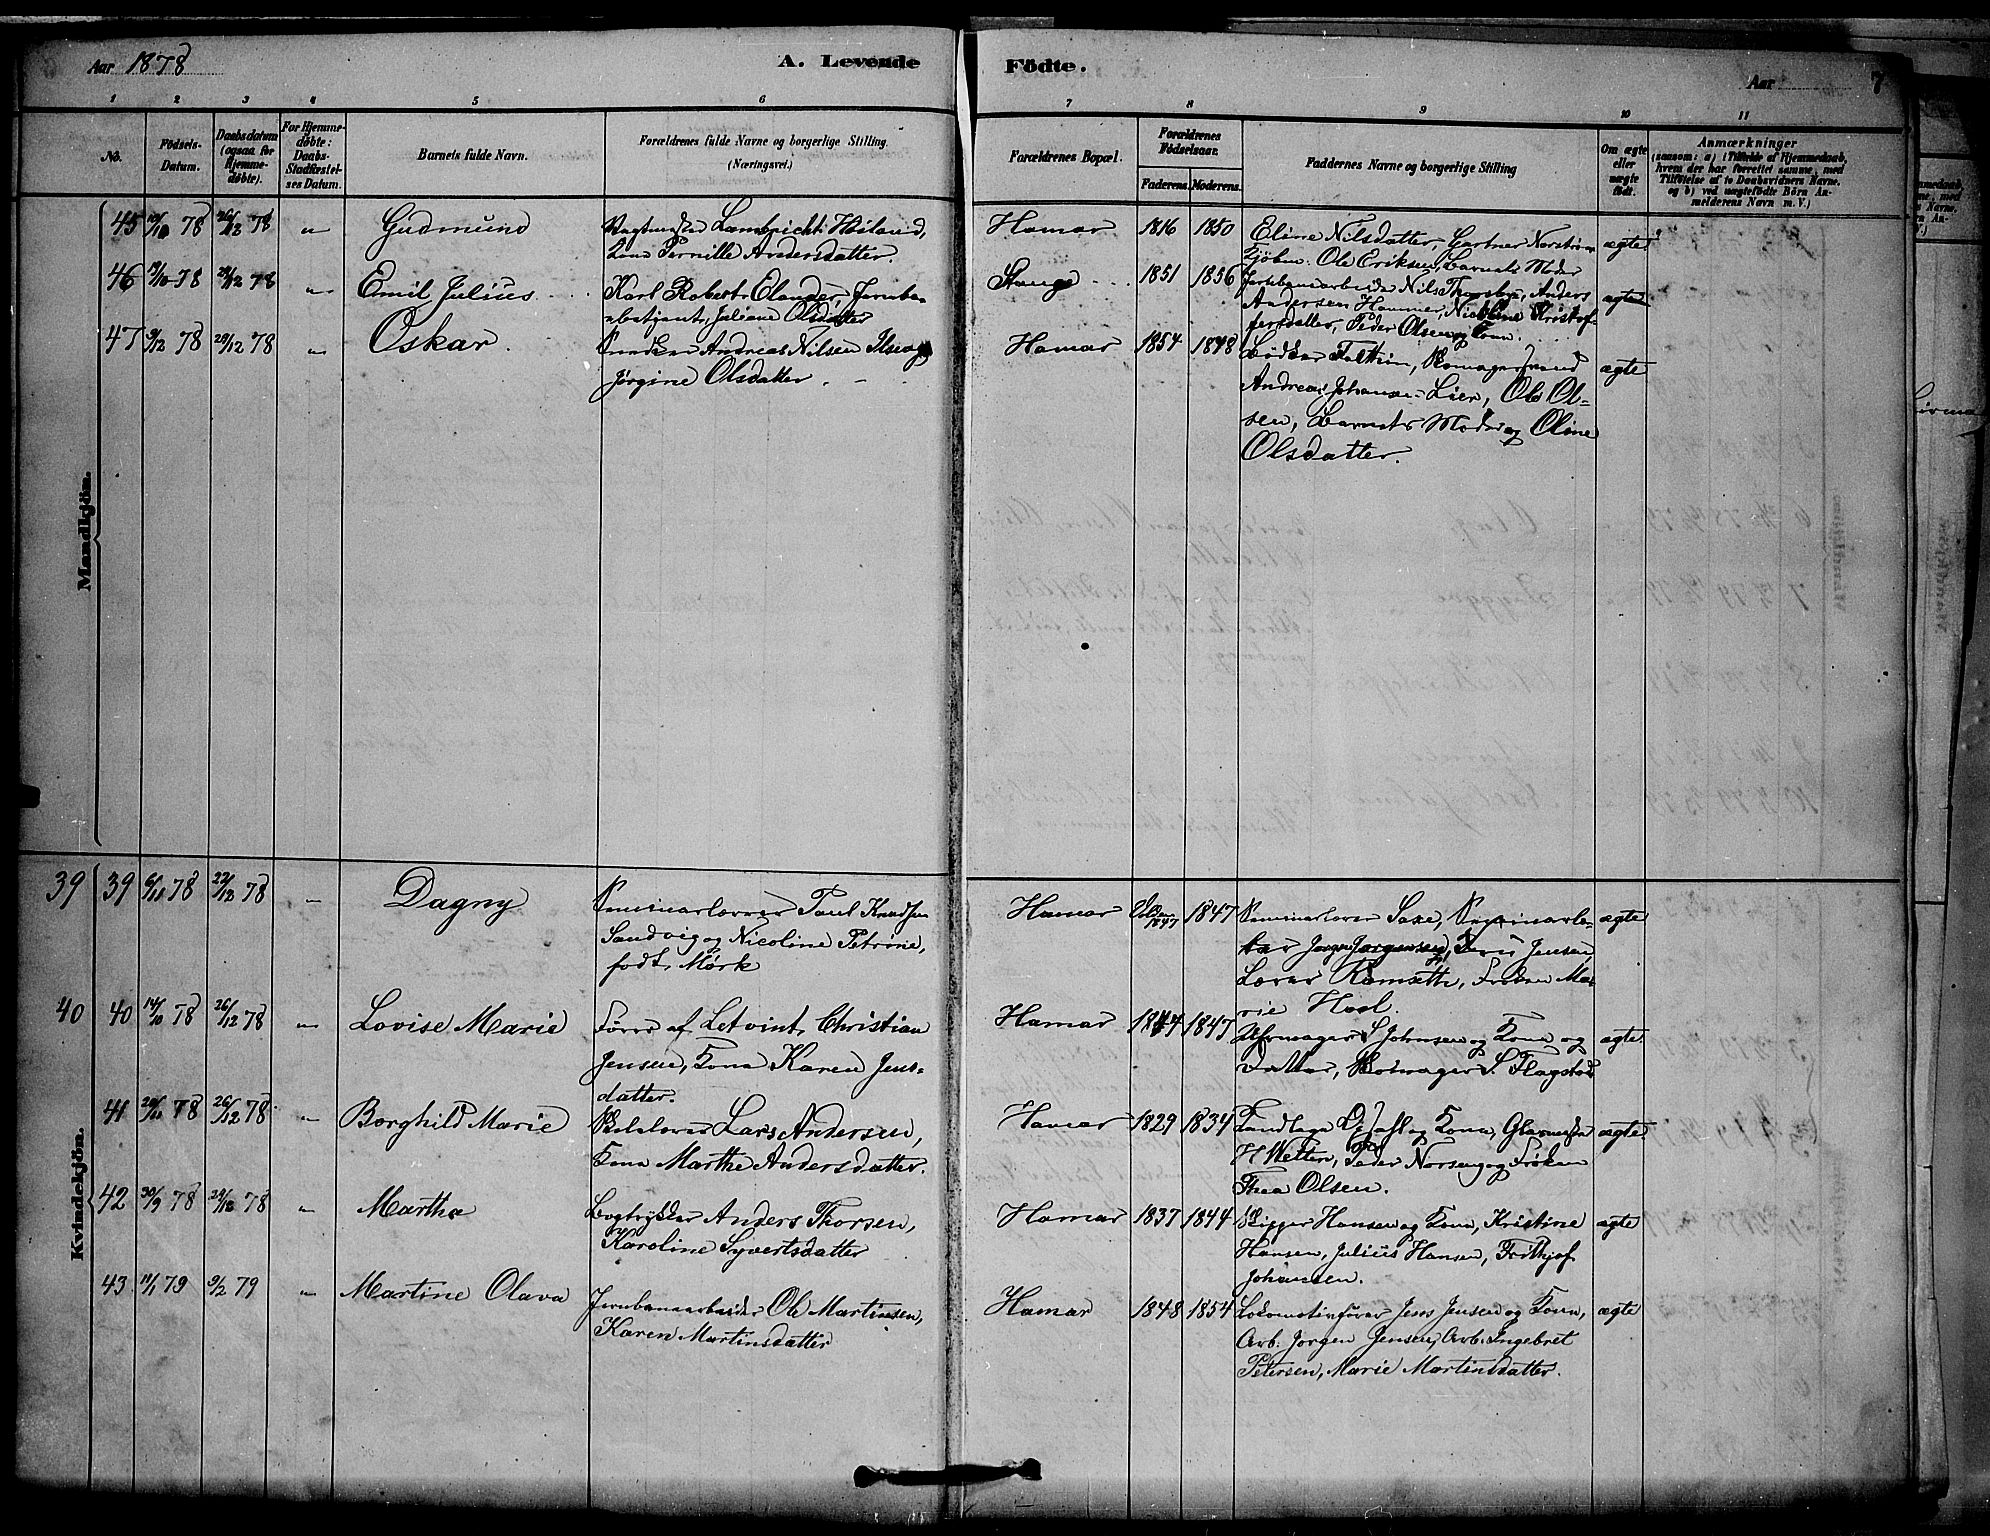 Aar 1878
A. Levende Födte.
Aar 7
1 2 3 4 5 6 7 8 9 10 11
No.
Födsels-Datum.
Daabsdatum (ogsaa for Hjemmedöbte).
For Hjemmedøbte: Daabs-Stadfæstelses Datum.
Barnets fulde Navn.
Forældrenes fulde Navne og borgerlige Stilling (Næringsvei.)
Forældrenes Bopæl.
Forældrenes Födselsaar.
Faderens. Moderens.
Faddernes Navne og borgerlige Stilling
Om ægte eller uægte födt.
Anmærkninger
(saasom: a) i Tilfælde af Hjemmedaab, hvem der har forrettet samme, med Tilföielse af to Daabsvidners Navne, og b) ved uægtefödte Börn Anmelderens Navn m. V.)
Mandkjön.
45 78 26/12 78 " Gudmund
Lambricht Høiland,
Kone Pernille Andersdatter.
Hamar 1816 1850
Eline Nilsdatter, Gartner
Ole Eriksen, Barnets Moder
ægte
46 78 78 " Emil Julius
Karl Robert Elander, Jernba-
nebetjent, Juliane Olsdatter
Stange 1851 1856
Jernbanearbeider Nils Anders
Andersen Hammer, Nicoline Kristof-
fersdatter, Peder Olsen og Kone.
ægte
47 9/12 78 29/12 78 " Oskar
Snedker Andreas Nilsen
Jørgine Olsdatter
Hamar 1854 1848
Bødker
Andreas Johansen Lier, Ole Ol-
sen, Barnets Moder og Oline
Olsdatter.
ægte
Kvindekjön.
39 39 78 22/12 78 " Dagny
Seminarlærer Paul Knudsen
Sandvig og Nicoline Petrine,
født Mørk
Hamar 1847 1847
Seminarlærer Saxe, Seminarlæ-
rer Jørgen Jørgensen, Fru Jensen,
Lærer Romseth, Frøken Ma-
rie Hosl.
ægte
40 40 14/10 78 26/12 78 " Lovise Marie
Fører af Letvint, Christian
Jensen, Kone Karen Jens-
datter.
Hamar 1844 1847
Uhrmager S Johnsen og Kone og
Datter, S. Flagstad
ægte
41 78 26/12 78 " Borghild Marie
Skolelærer Lars Andersen,
Kone Marthe Andersdatter.
Hamar 1829 1834
Tandlæge og Kone, Glarmester
H Wetten, Peder Norseng og Frøken
Thea Olsen.
ægte
42 30/9 78 29/12 78 " Martha
Bogtrykker Anders Thorsen,
Karoline Syvertsdatter
Hamar 1837 1844
Skipper Hansen og Kone, Kristine
Hansen, Julius Hansen, Frithjof
Johansen.
ægte
43 11/1 79 9/2 79 " Martine Olava
Jernbanearbeider Ole Martinsen,
Karen Martinsdatter
Hamar 1848 1854
Lokomotivfører Jens Jensen og Kone,
Arb. Jørgen Jensen, Arb. Ingebret
Petersen, Marie Martinsdatter.
ægte